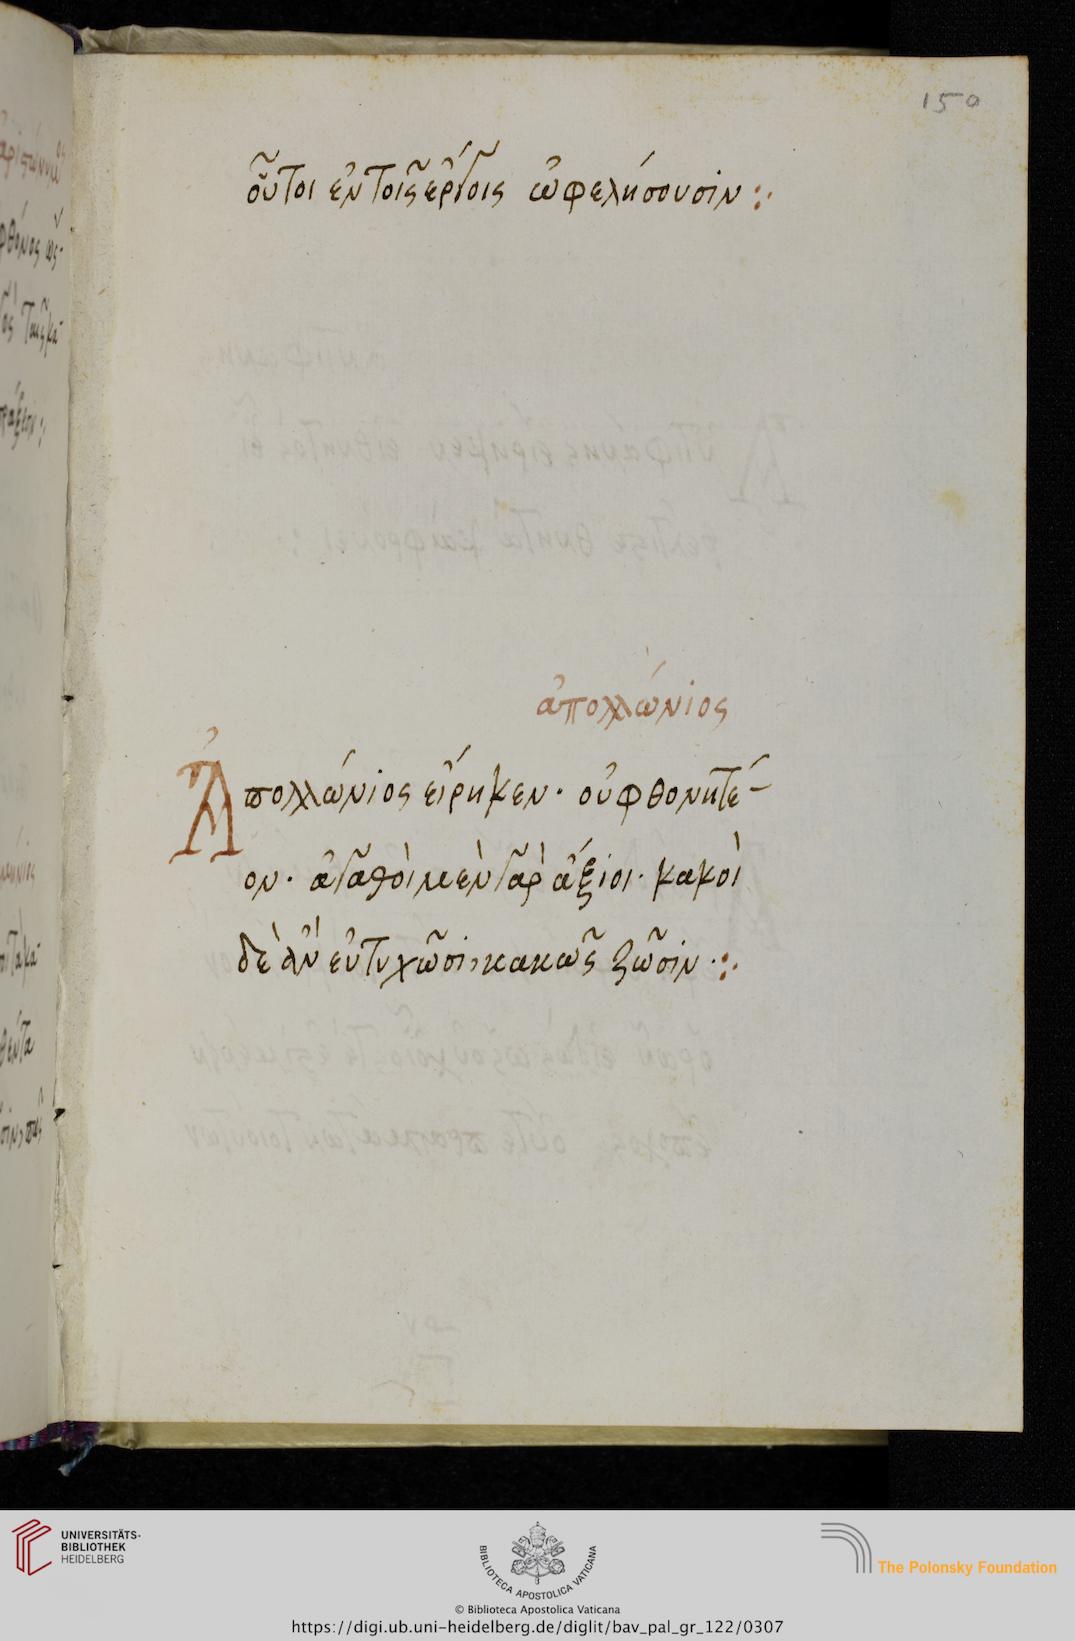 150
οὗτοι ἐν τοῖς ἔργοις ὠφελήσουσιν :·
ἀπολλώνιος
Ἀπολλώνιος εἴρηκεν · οὐ φθονητέ-
ον · ἀγαθοὶ μὲν γὰρ ἄξιοι · κακοὶ
δὲ ἂν εὐτυχῶσι, κακῶς ζῶσιν ·:·
UNIVERSITÄTS-
BIBLIOTHEK
HEIDELBERG
BIBLIOTECA APOSTOLICA VATICANA
The Polonsky Foundation
© Biblioteca Apostolica Vaticana
https://digi.ub.uni-heidelberg.de/diglit/bav_pal_gr_122/0307